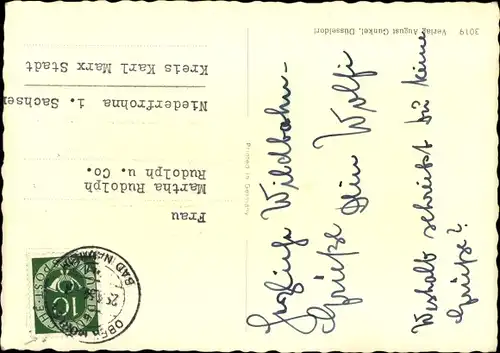 3019 Verlag August Gunkel, Düsseldorf
Printed in Germany
Große Wildbahn-
Grüße Dein Wolfi
Weshalb schreibst Du keine
Grüße?
Frau
Martha Rudolph
Rudolph u. Co.
Niederfrohna i. Sachsen
Kreis Karl Marx Stadt
10
BAD NAUHEIM